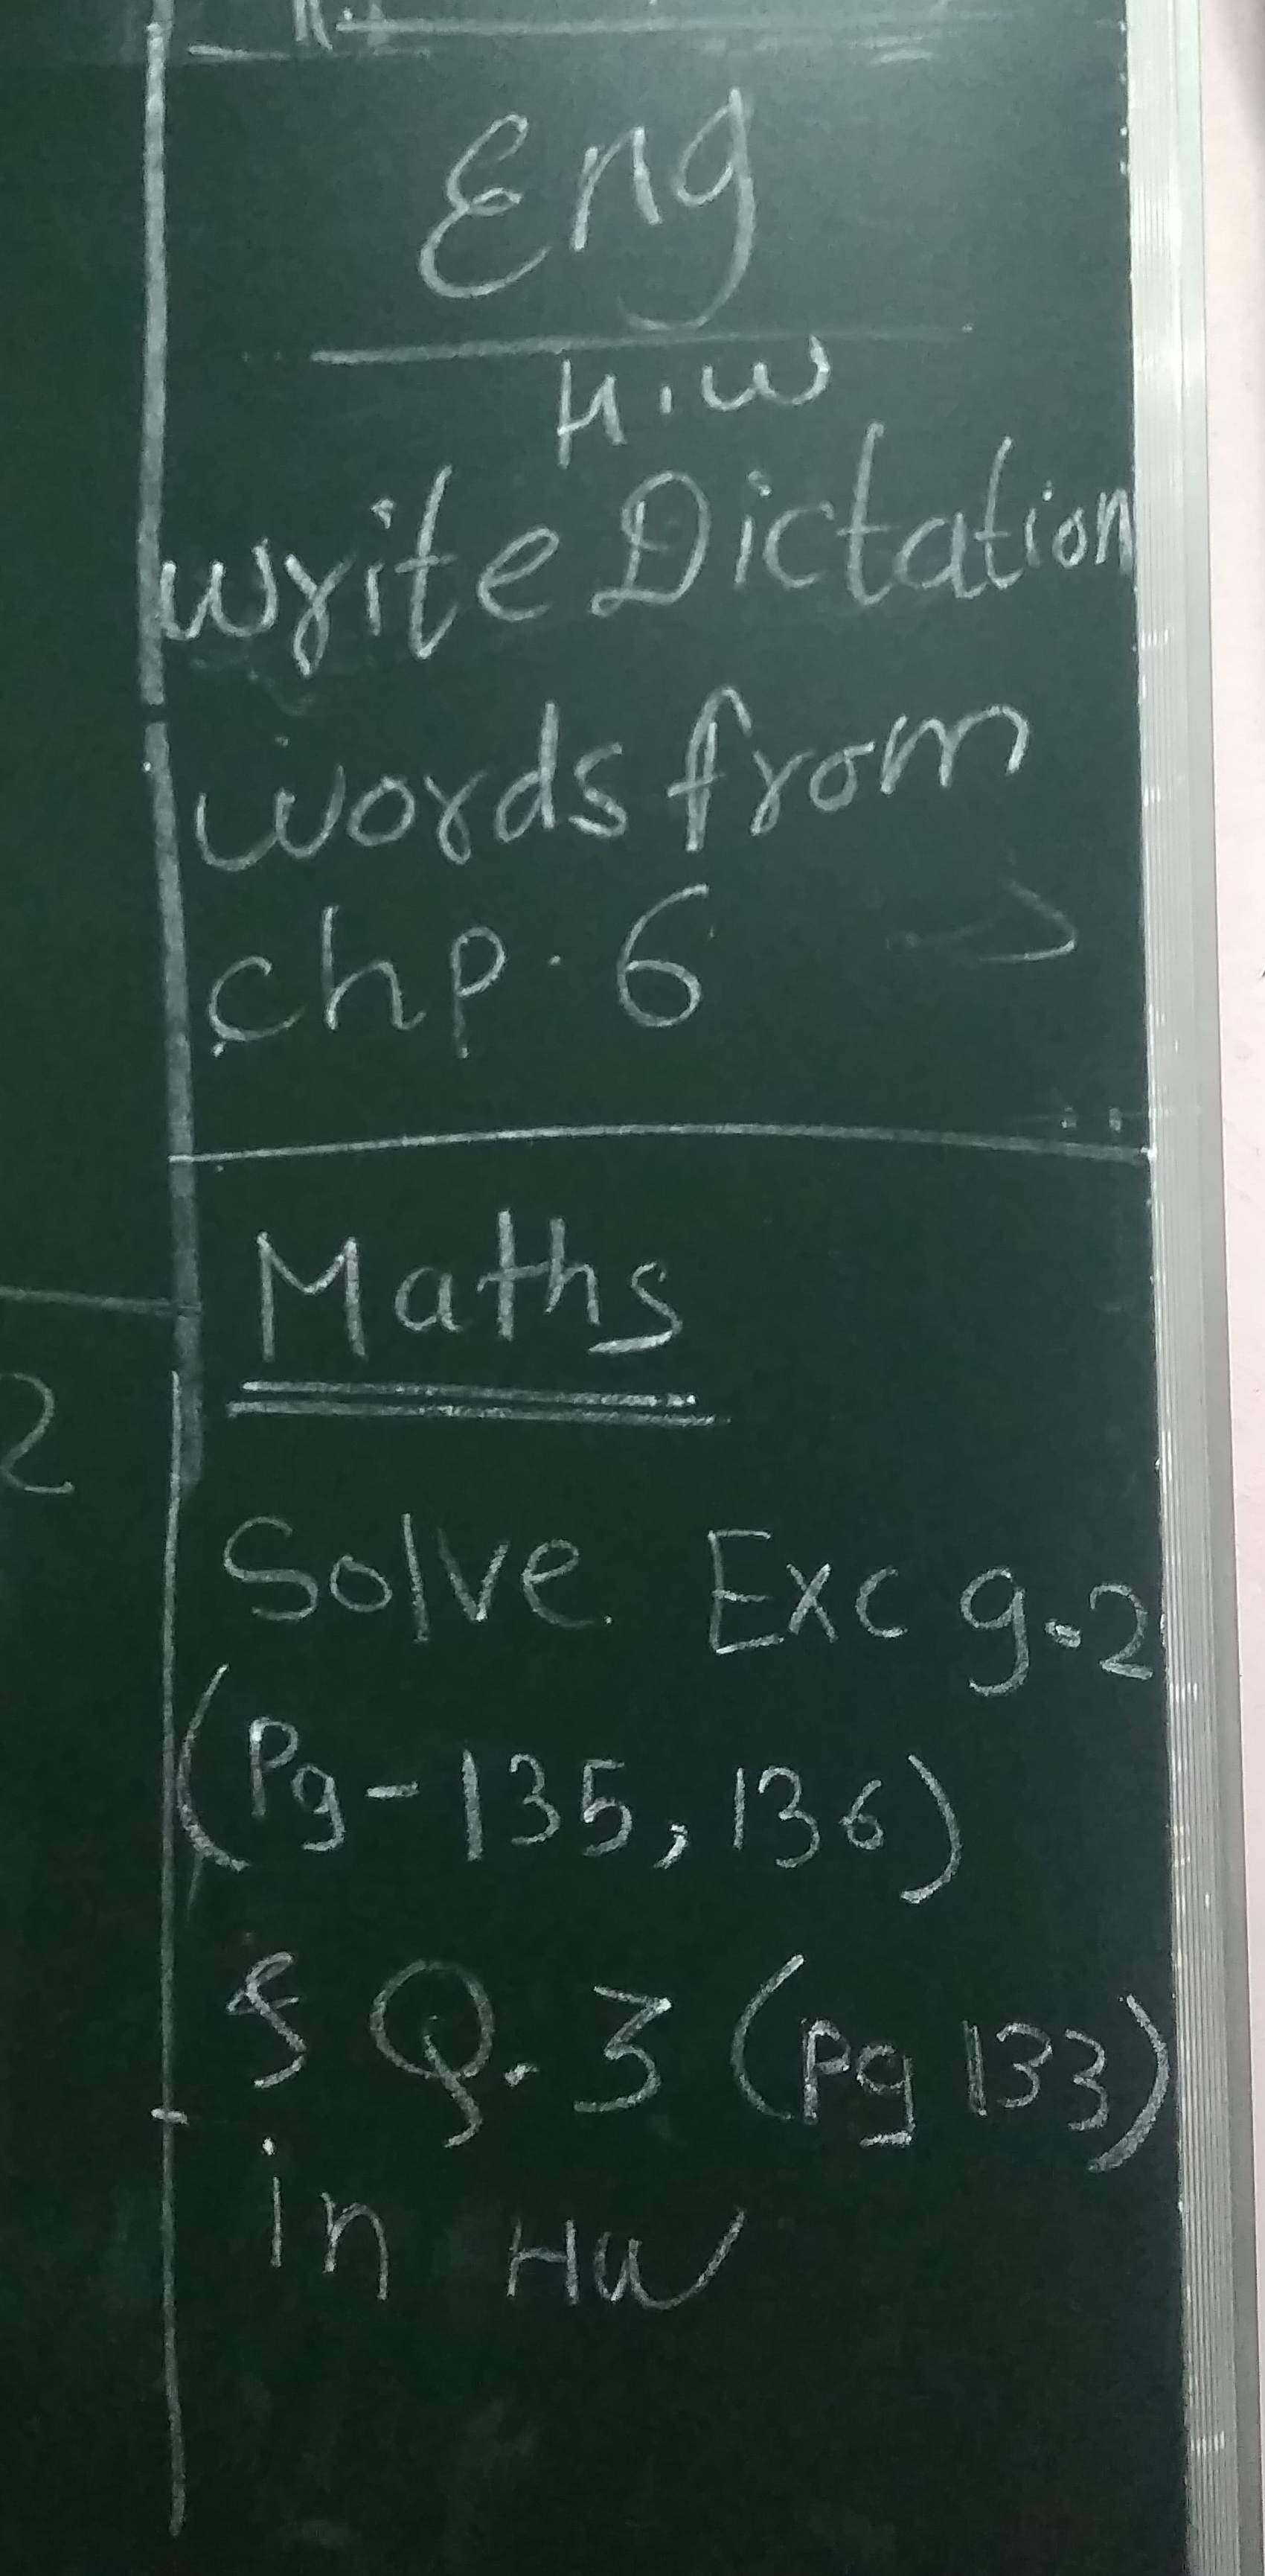 Eng
H.W
Write Dictation
words from
chp. 6
Maths
Solve Exc 9.2
(Pg - 135, 136)
& Q. 3 (Pg 133)
in HW
2